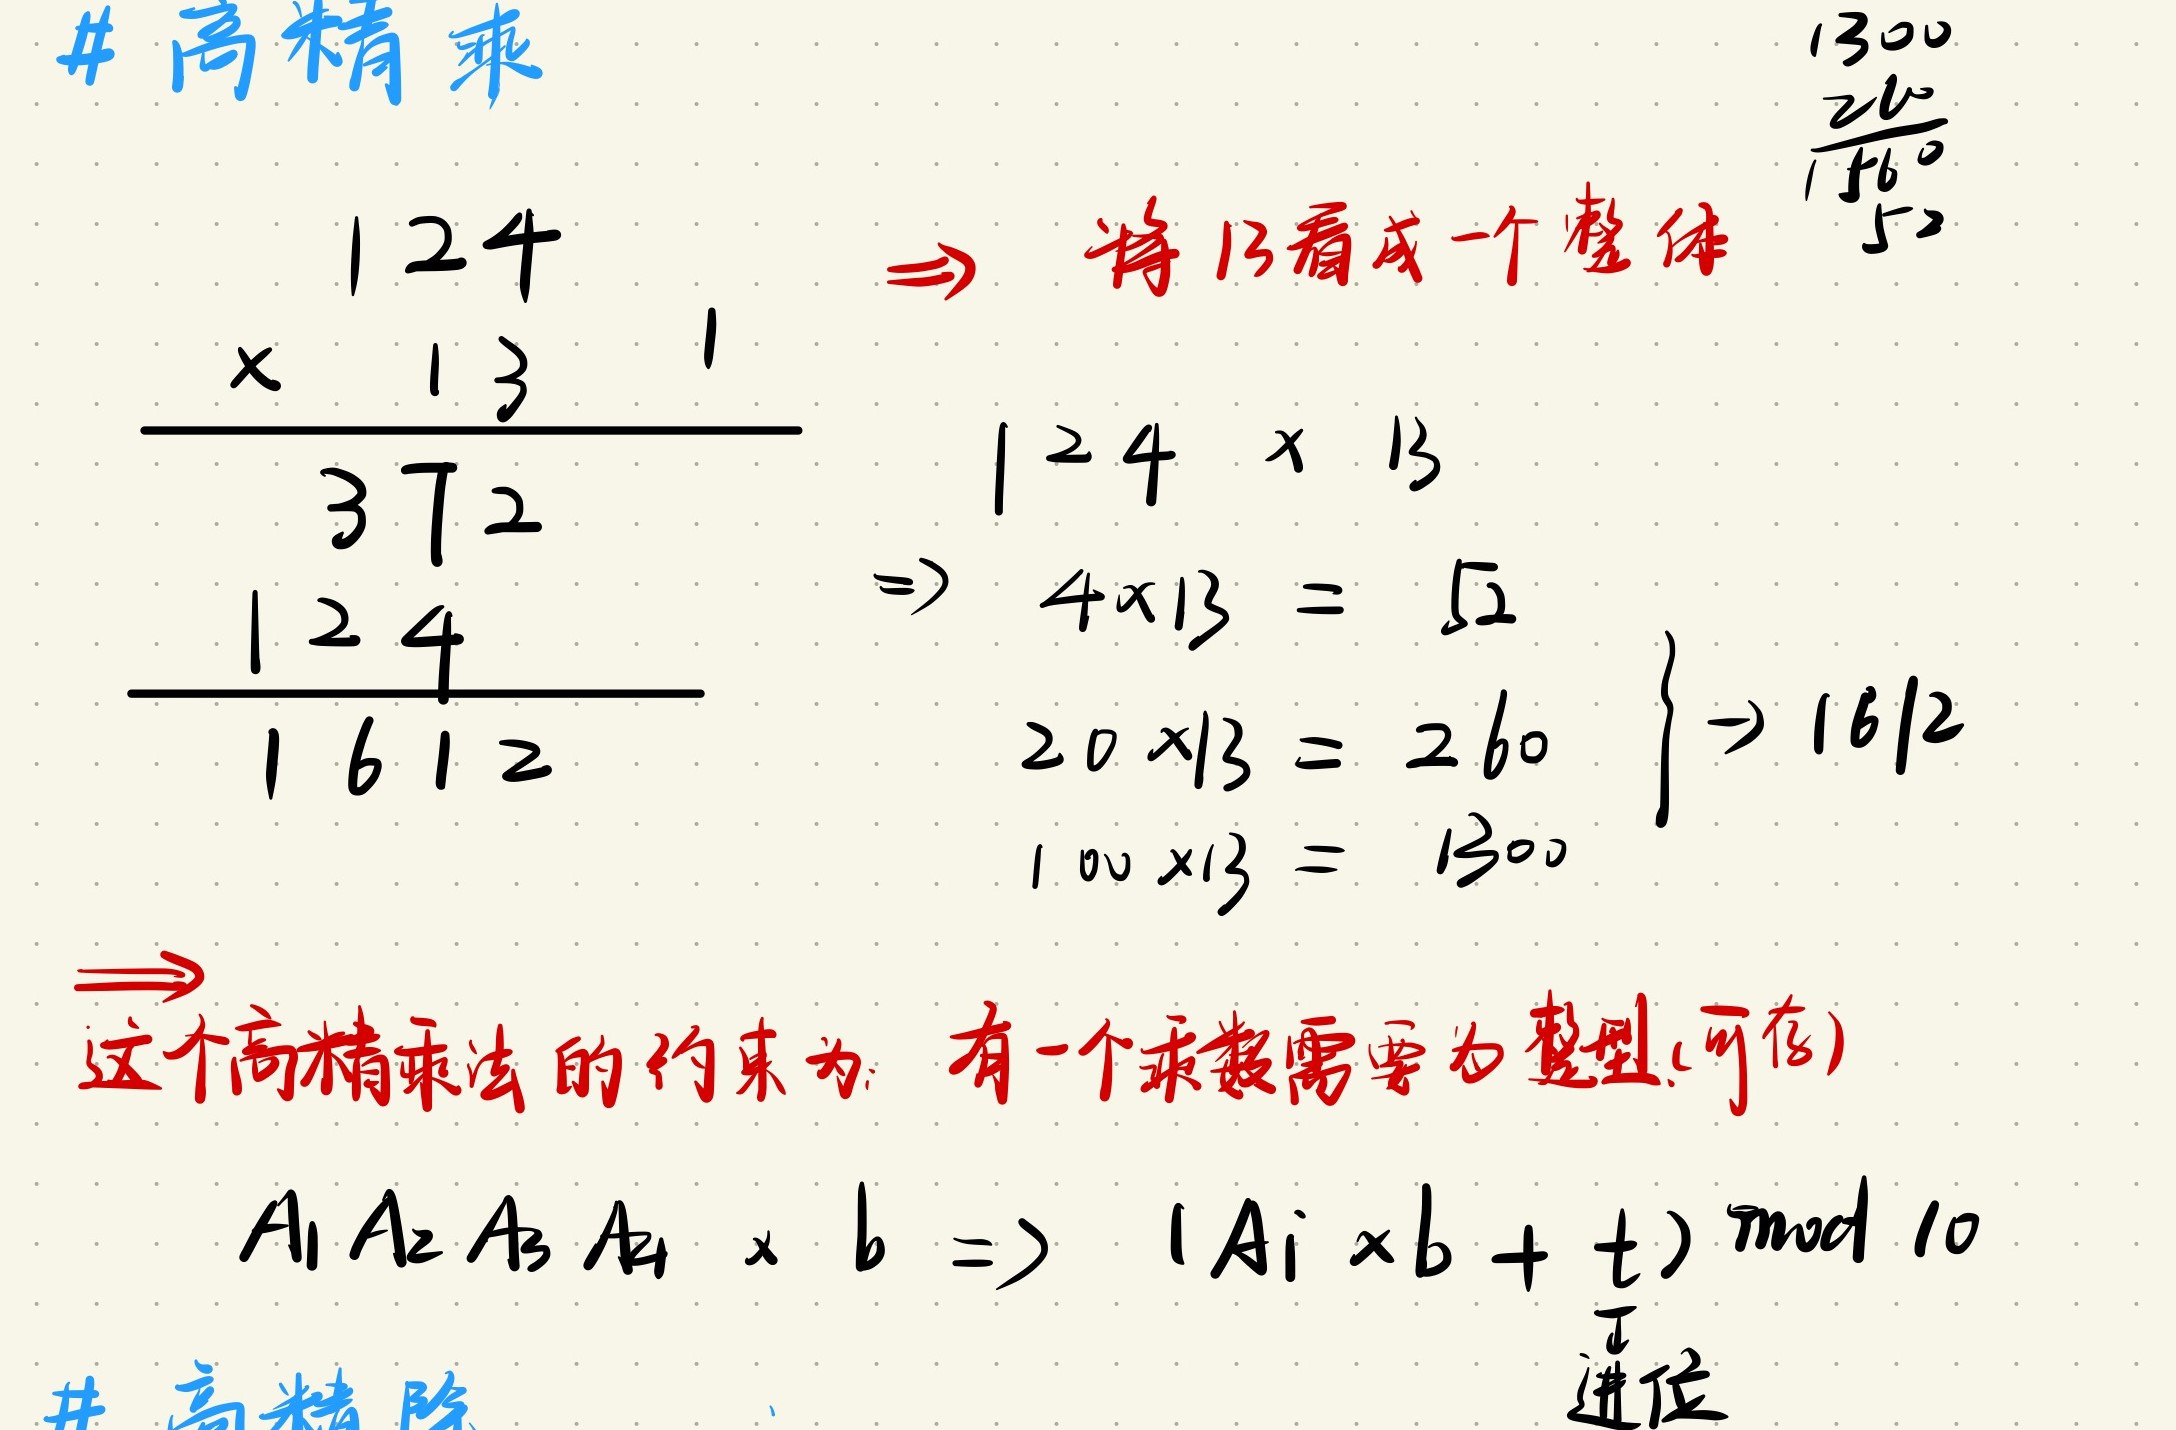 # 高精乘
1300
260
1560
52
124
× 13 1
372
124
1612
⇒ 将13看成一个整体
124 × 13
⇒ 4×13 = 52
20×13 = 260
100×13 = 1300
} → 1612
⇒
这个高精乘法的约束为: 有一个乘数需要为整型(可存)
A1 A2 A3 A4 × b ⇒ (Ai × b + t) mod 10
↓
进位
# 高精除